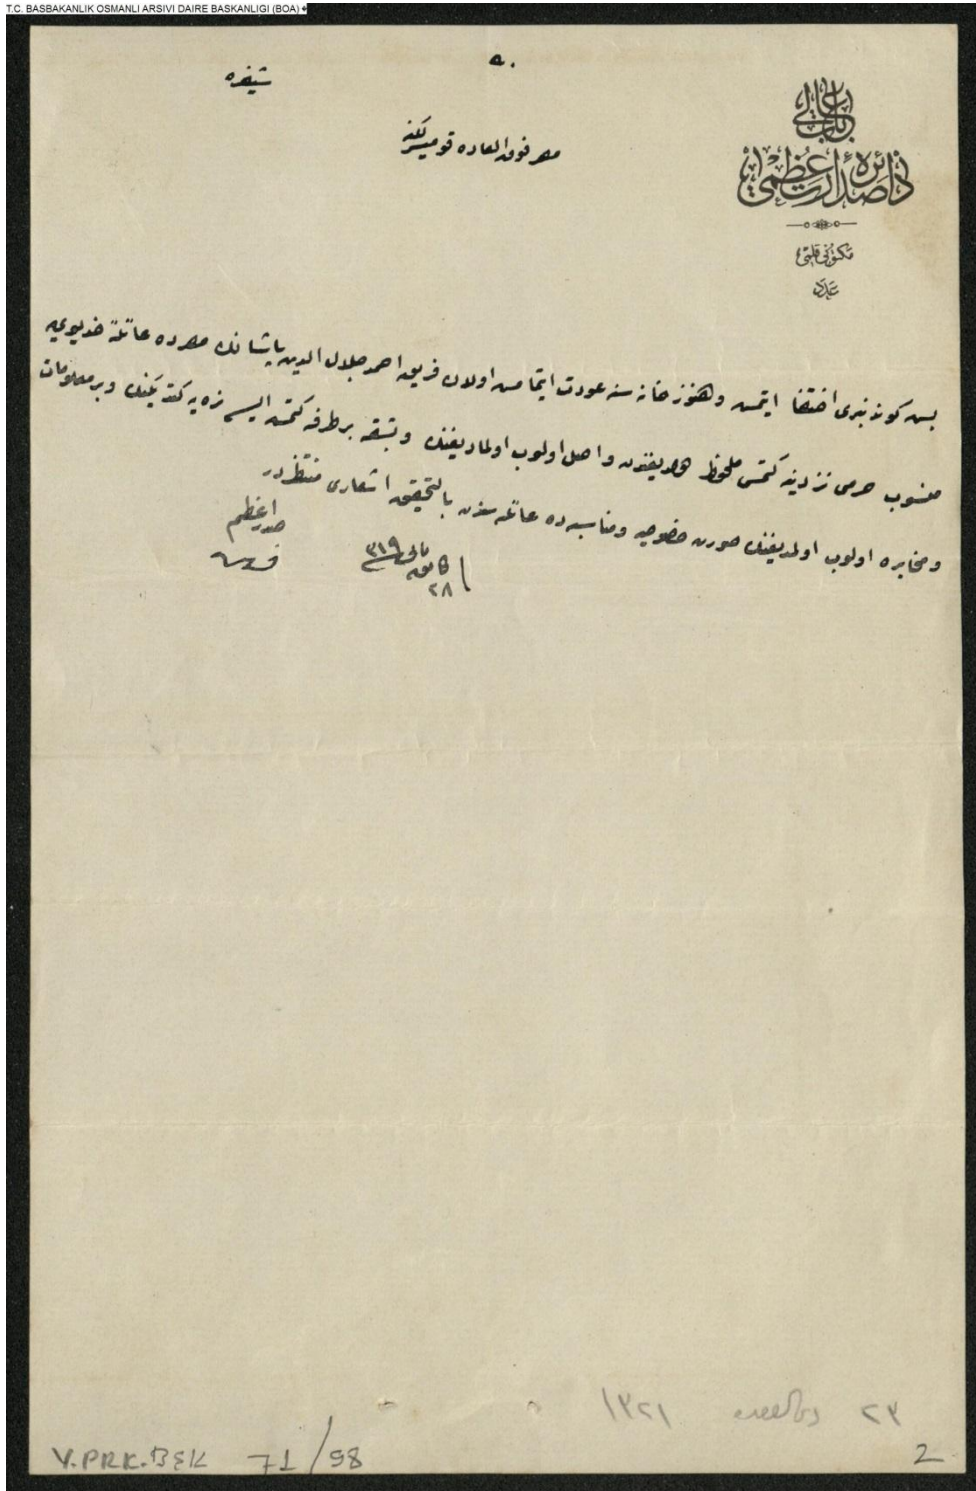 T.C. BASBAKANLIK OSMANLI ARSIVI DAIRE BASKANLIGI (BOA)
شیفره
باب عالی
دائرهٔ صدارت عظمی
مكتوبی قلمی
عدد
مصر فوق العاده قومیسرلكنه
بش كوندنبری اختفا ایتمش وهنوز خانه سنه عودت ایتمامش اولان فریق احمد جلال الدین پاشانك مصرده عائلهٔ خدیوییه
منسوب حرمی نزدینه كتمسی ملحوظ اولدیغندن واصل اولوب اولمادیغنك وبشقه بر طرفه كتمش ایسه نره یه كتدیكنك وبر معلومات
ومخابره اولوب اولمدیغنك صورت خصوصیه ومناسبه ده عائله سندن بالتحقیق اشعاری منتظردر
صدر اعظم
فرید
٢٨ كانون ثانی ٣١٩
٢٣ ذی القعده ١٣٢١
Y.PRK.BŞK 71/98
2